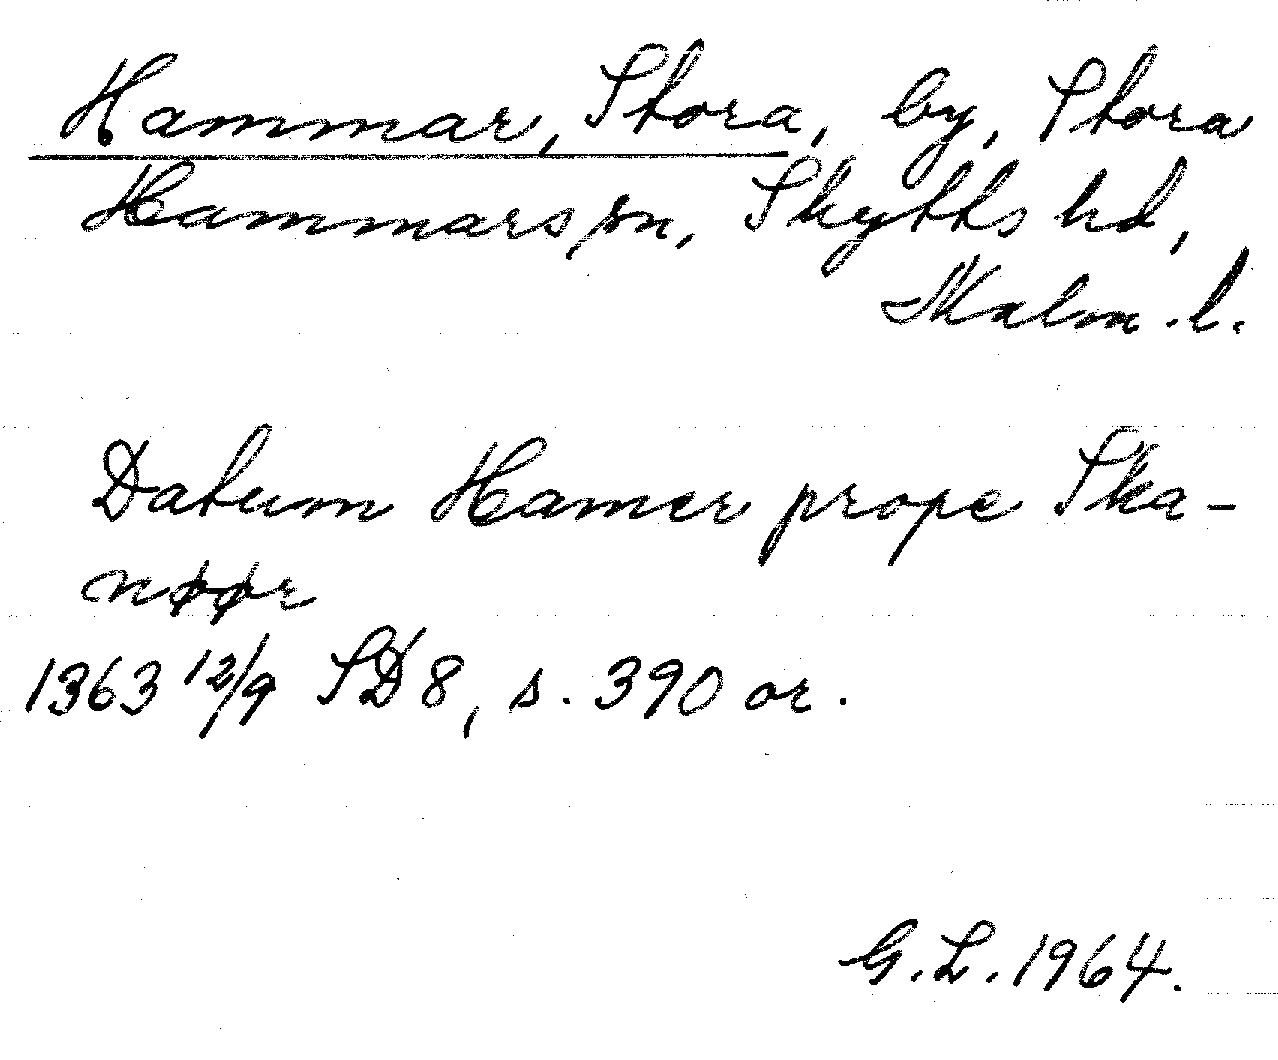 Hammar, Stora, by, Stora
Hammars sn, Skytts hd,
Malm. l.
Datum Hamer prope Ska-
nøør
1363 12/9 SD 8, s. 390 or.
G. L. 1964.